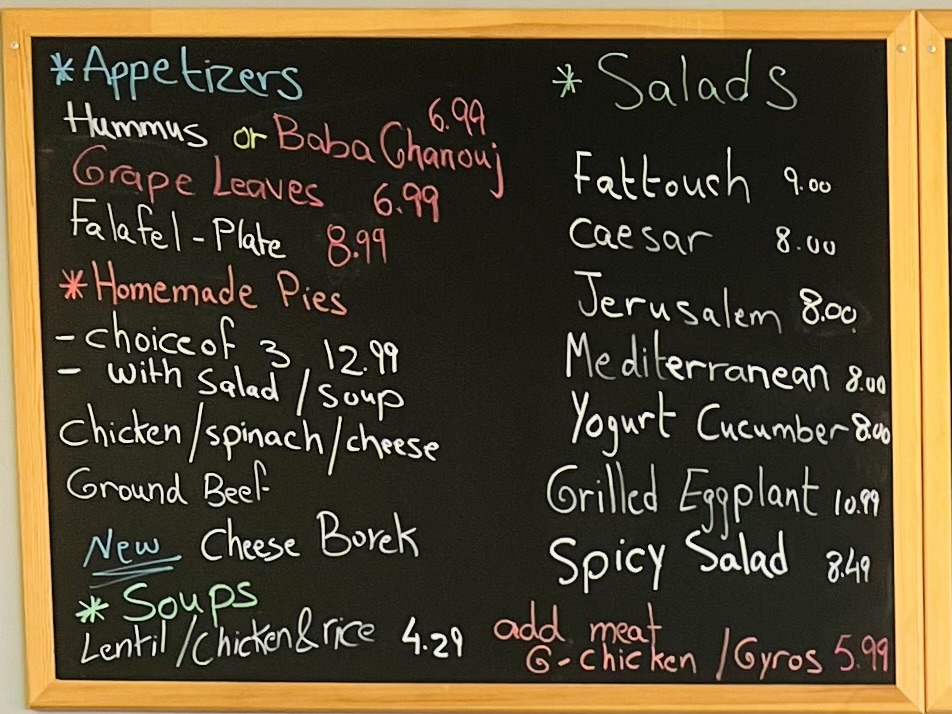 *Appetizers
Hummus or Baba Ghanouj 6.99
Grape Leaves 6.99
Falafel-Plate 8.99
*Homemade Pies
- choice of 3 12.99
- with Salad/Soup
Chicken/spinach/cheese
Ground Beef
New Cheese Borek
* Soups
Lentil/Chicken&rice 4.29
* Salads
Fattouch 9.00
Caesar 8.00
Jerusalem 8.00
Mediterranean 8.00
Yogurt Cucumber 8.00
Grilled Eggplant 10.99
Spicy Salad 8.49
add meat
G-chicken /Gyros 5.99